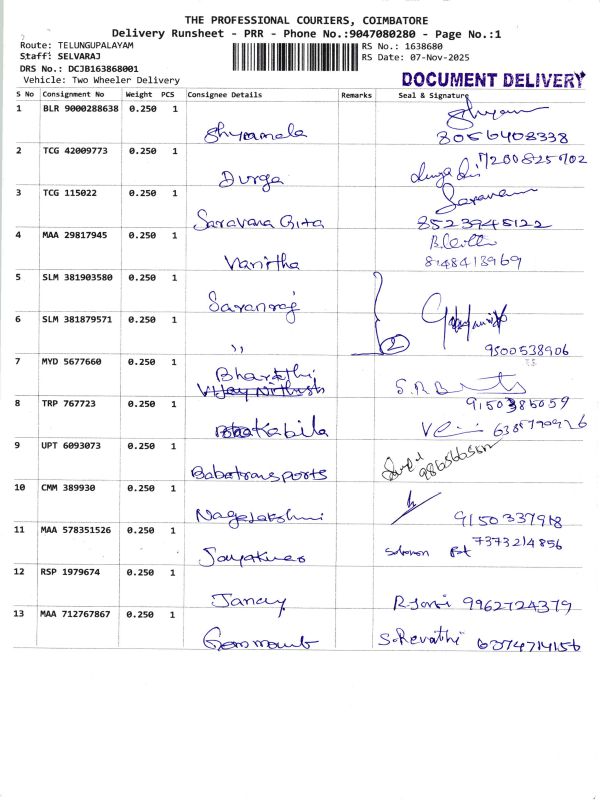 THE PROFESSIONAL COURIERS, COIMBATORE
Delivery Runsheet - PRR - Phone No.:9047080280 - Page No.:1
Route: TELUNGUPALAYAM
Staff: SELVARAJ
DRS No.: DCJB163868001
Vehicle: Two Wheeler Delivery
RS No.: 1638680
RS Date: 07-Nov-2025
DOCUMENT DELIVERY
S No Consignment No Weight PCS Consignee Details Remarks Seal & Signature
1 BLR 9000288638 0.250 1 Shyamala
8056408338
2 TCG 42009773 0.250 1 Durga 7200825702
3 TCG 115022 0.250 1 Saravana Gita Saravan
8523945122
4 MAA 29817945 0.250 1 Vanitha
8148413969
5 SLM 381903580 0.250 1 Saranraj
6 SLM 381879571 0.250 1 ,, 2
9500538906
7 MYD 5677660 0.250 1 Bharathi
9150385059
8 TRP 767723 0.250 1 Kabila
9 UPT 6093073 0.250 1 Babatransports
10 CMM 389930 0.250 1 Nagelakshmi 9150337918
11 MAA 578351526 0.250 1 7373214856
12 RSP 1979674 0.250 1 Jancy 9962724379
13 MAA 712767867 0.250 1 S.Revathi 6374714156